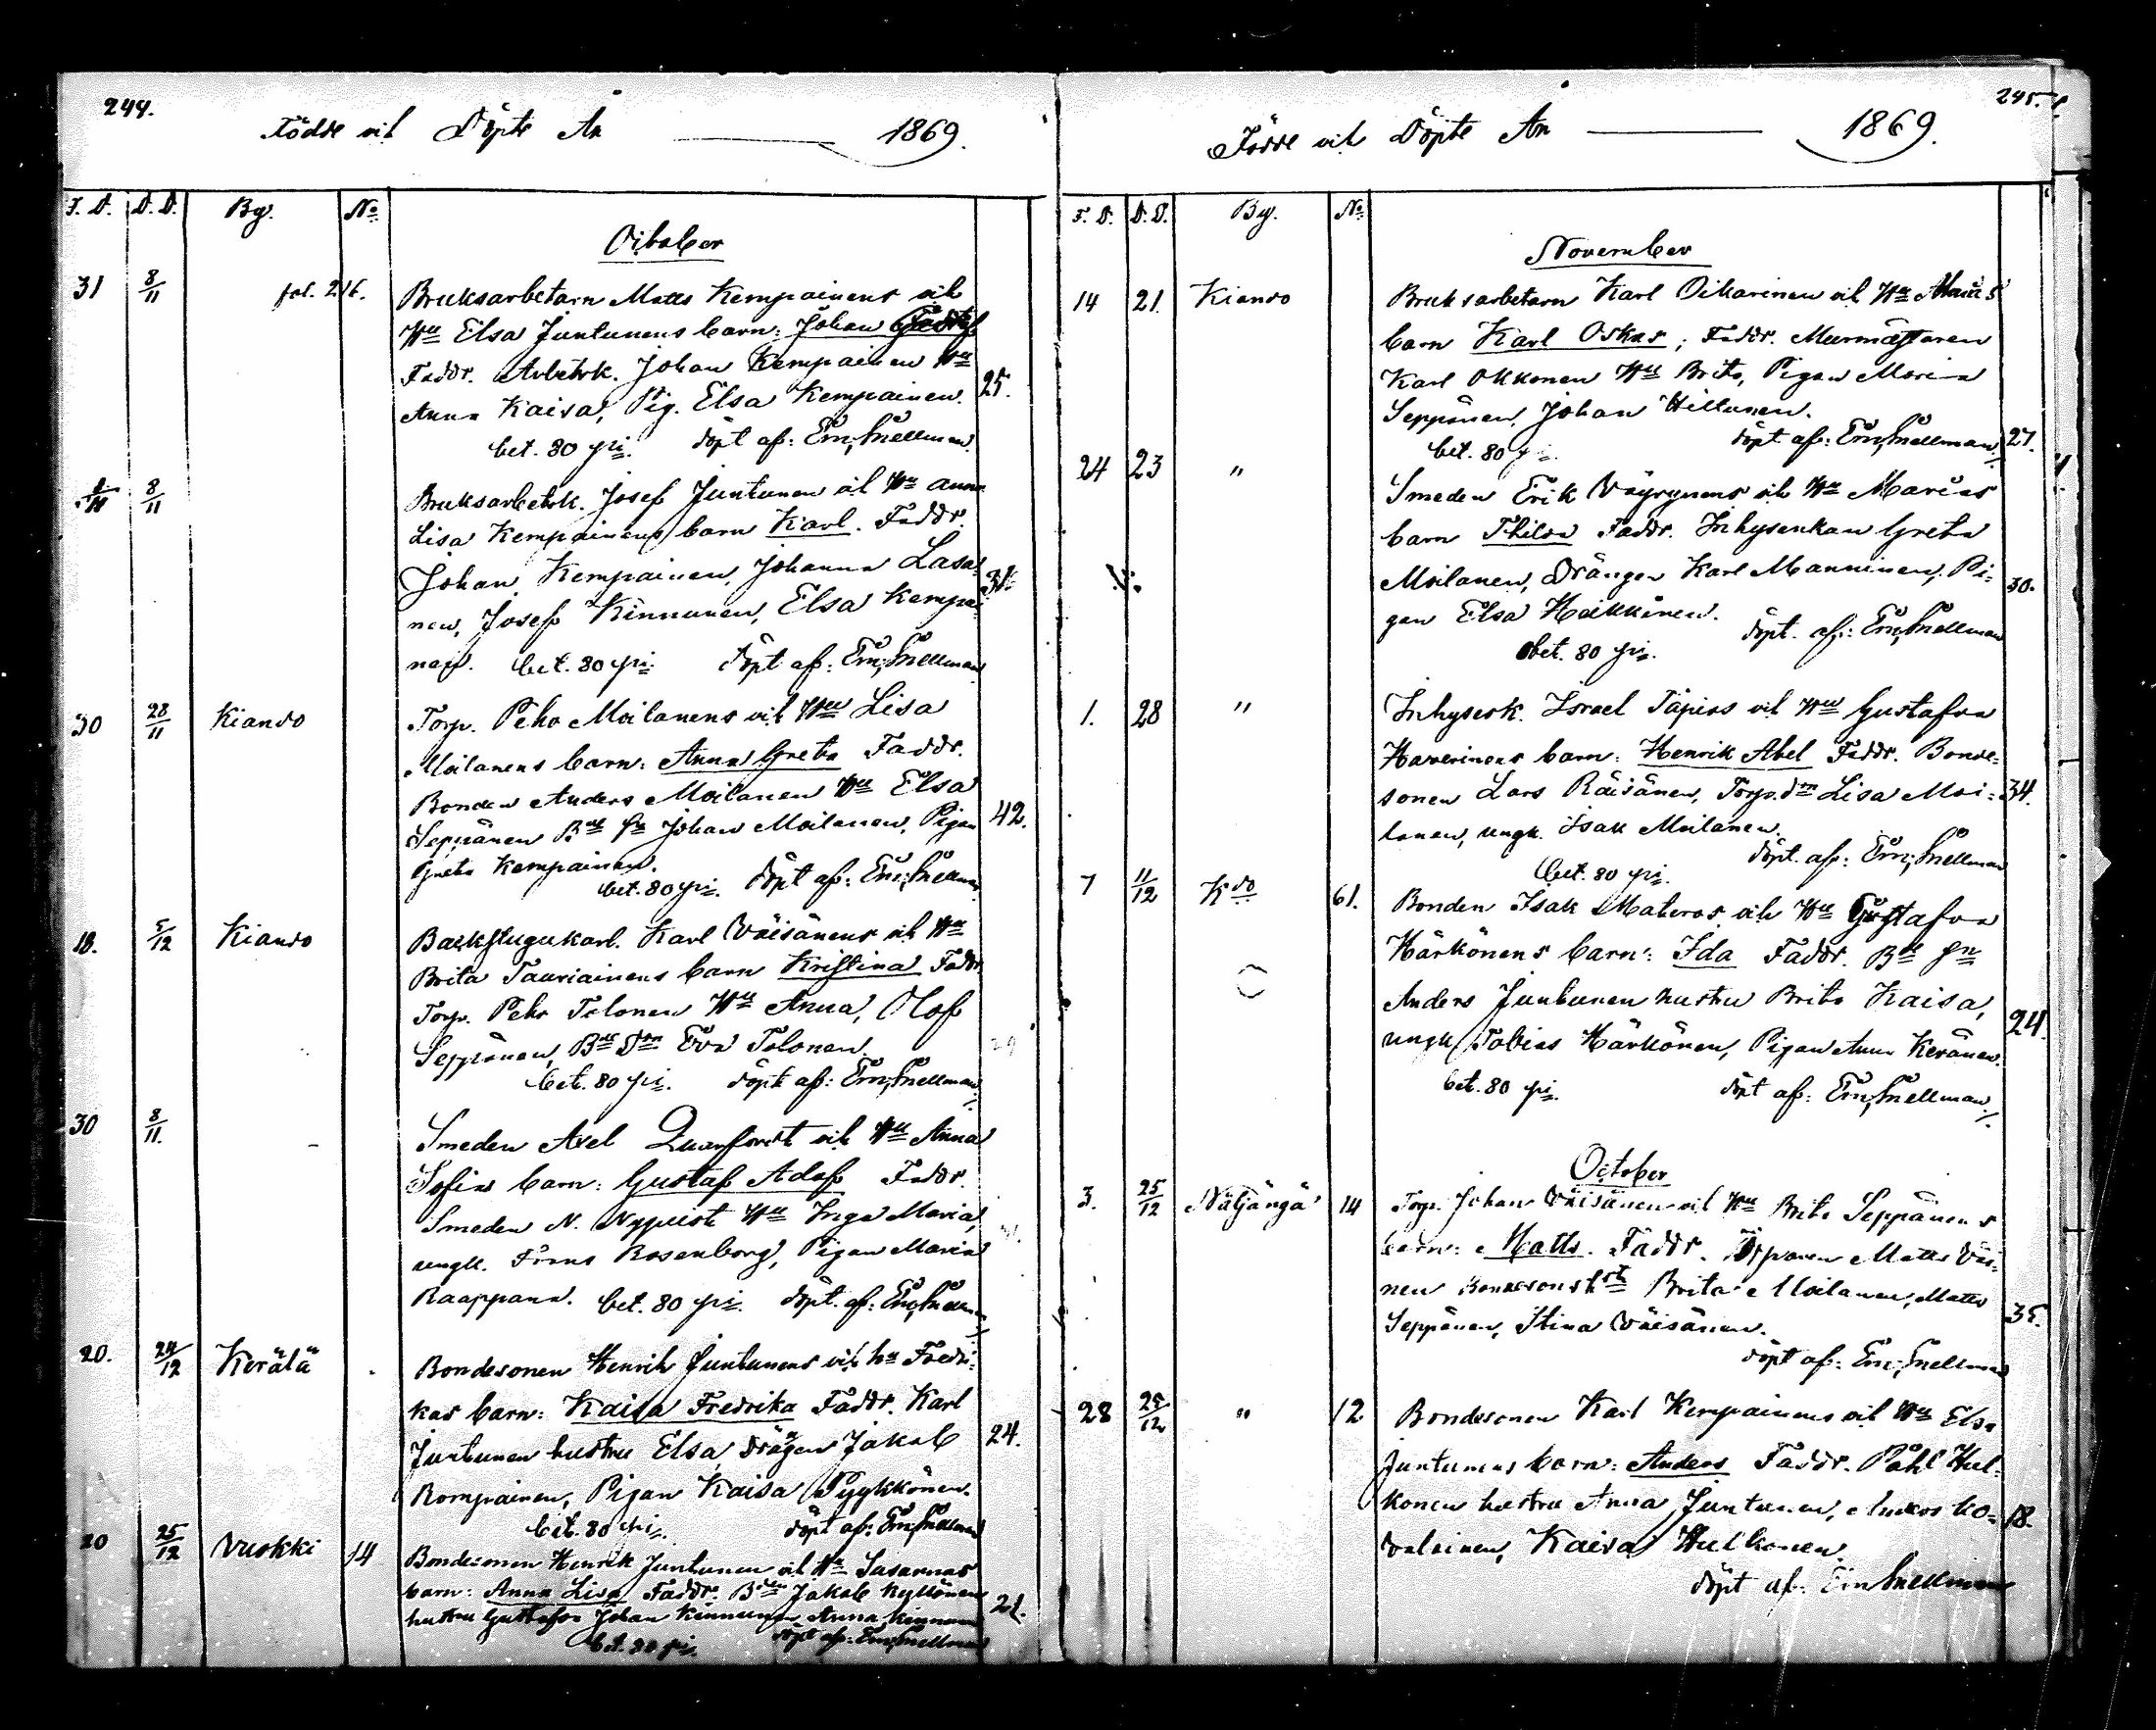 244.
Födde och Döpte År 1869.
F. D. D. D. By. No
October
31 8/11 fol. 216. Bruksarbetarn Matts Kempainens och
Hu Elsa Juntunens barn: Johan Gustaf
Faddr. Arbetsk. Johan Kempainen Hu
Anna Kaisa, Pig. Elsa Kempainen. 25.
bet. 80 pi. döpt af: Em. Snellman.
8/11 Bruksarbetsk. Josef Juntunen och Hu Anna
Lisa Kempainens barn Karl. Faddr.
Johan Kempainen, Johanna Lasa-
nen, Josef Kinnunen, Elsa Kempai- 31.
nen. bet. 80 pi. döpt af: Em. Snellman
30 28/11 Kiando Torp. Peho Moilanens och Hu Lisa
Moilanens barn: Anna Greta Faddr.
Bonden Anders Moilanen Hu Elsa
Seppänen Bde Sn Johan Moilanen, Pigan 42.
Greta Kempainen.
bet. 80 pi. döpt af: Em. Snellman
18. 5/12 Kiando Backstugukarl. Karl Väisänens och Hu
Brita Tauriainens barn Kristina Faddr.
Torp. Pehr Tolonen Hu Anna, Olof
Seppänen, Bde Dn Eva Tolonen. 29
bet. 80 pi. döpt af: Em. Snellman
30 8/11. Smeden Axel och Hu Anna
Sofias barn: Gustaf Adolf Faddr.
Smeden N. Nyqvist Hu Inga Maria,
ungk. Frans Rosenborg, Pigan Maria
Raappana. bet. 80 pi. döpt af: Em. Snellman
20. 24/12 Kerälä Bondesonen Henrik Juntunens och hu Fredri-
kas barn: Kaisa Fredrika Faddr. Karl
Juntunen hustru Elsa, Drängen Jakob 24.
Kompainen, Pigan Kaisa Pyykkönen.
bet. 80 pi. döpt af: Em. Snellman
20 25/12 Vuokki 14 Bondesonen Henrik Juntunen och Hu Susannas
barn: Anna Lisa Faddr. Jakob Kyllönen
hustru Gustafva Johan Kinnunen Anna Kinnunen 21.
bet. 80 pi. döpt af: Em. Snellman
245.
Födde och Döpte År 1869.
F. D. D. D. By. No
November
14 21. Kiando Bruksarbetarn Karl Oikarinen och Hu Marias
barn Karl Oskar; Faddr. Murmästaren
Karl Okkonen Hu Brita, Pigan Maria
Seppänen, Johan Hiltunen.
bet. 80 pi. döpt af: Em. Snellman. 27.
24 23 " Smeden Erik Väyrynens och Hu Marias
barn Thilda Faddr. Inhysenkan Greta
Moilanen, Drängen Karl Manninen, Pi-
gan Elsa Heikkinen. 30.
bet. 80 pi. döpt. af: Em. Snellman
1. 28 " Inhysesk. Israel Täpios och Hu Gustafva
Haverinens barn: Henrik Abel Faddr. Bonde-
sonen Lars Räisänen, Torp. dn Lisa Moi- 34.
lanen, ungk. Isak Moilanen.
bet. 80 pi. döpt. af: Em. Snellman
7 11/12 Kdo 61. Bonden Isak Materos och Hu Gustafva
Härkönens barn: Ida Faddr. Bde Sn
Anders Juntunen hustru Brita Kaisa,
ungk Tobias Härkönen, Pigan Anna Keränen. 24.
bet. 80 pi. döpt af: Em. Snellman
October
3. 25/12 Näljängä 14 Torp. Johan Väisänen och Hu Brita Seppänens
barn: Matts. Faddr. Torparen Matts Väisä-
nen Bondesons hst Brita Moilanen, Matts
Seppänen, Stina Väisänen. 35.
döpt af: Em. Snellman
28 25/12 " 12 Bondesonen Karl Kempainens och Hu Elsa
Juntunens barn: Anders Faddr. Påhl Hul-
konen hustru Anna Juntunen, Anders Ko- 18.
valainen, Kaisa Hulkonen.
döpt af: Em Snellman